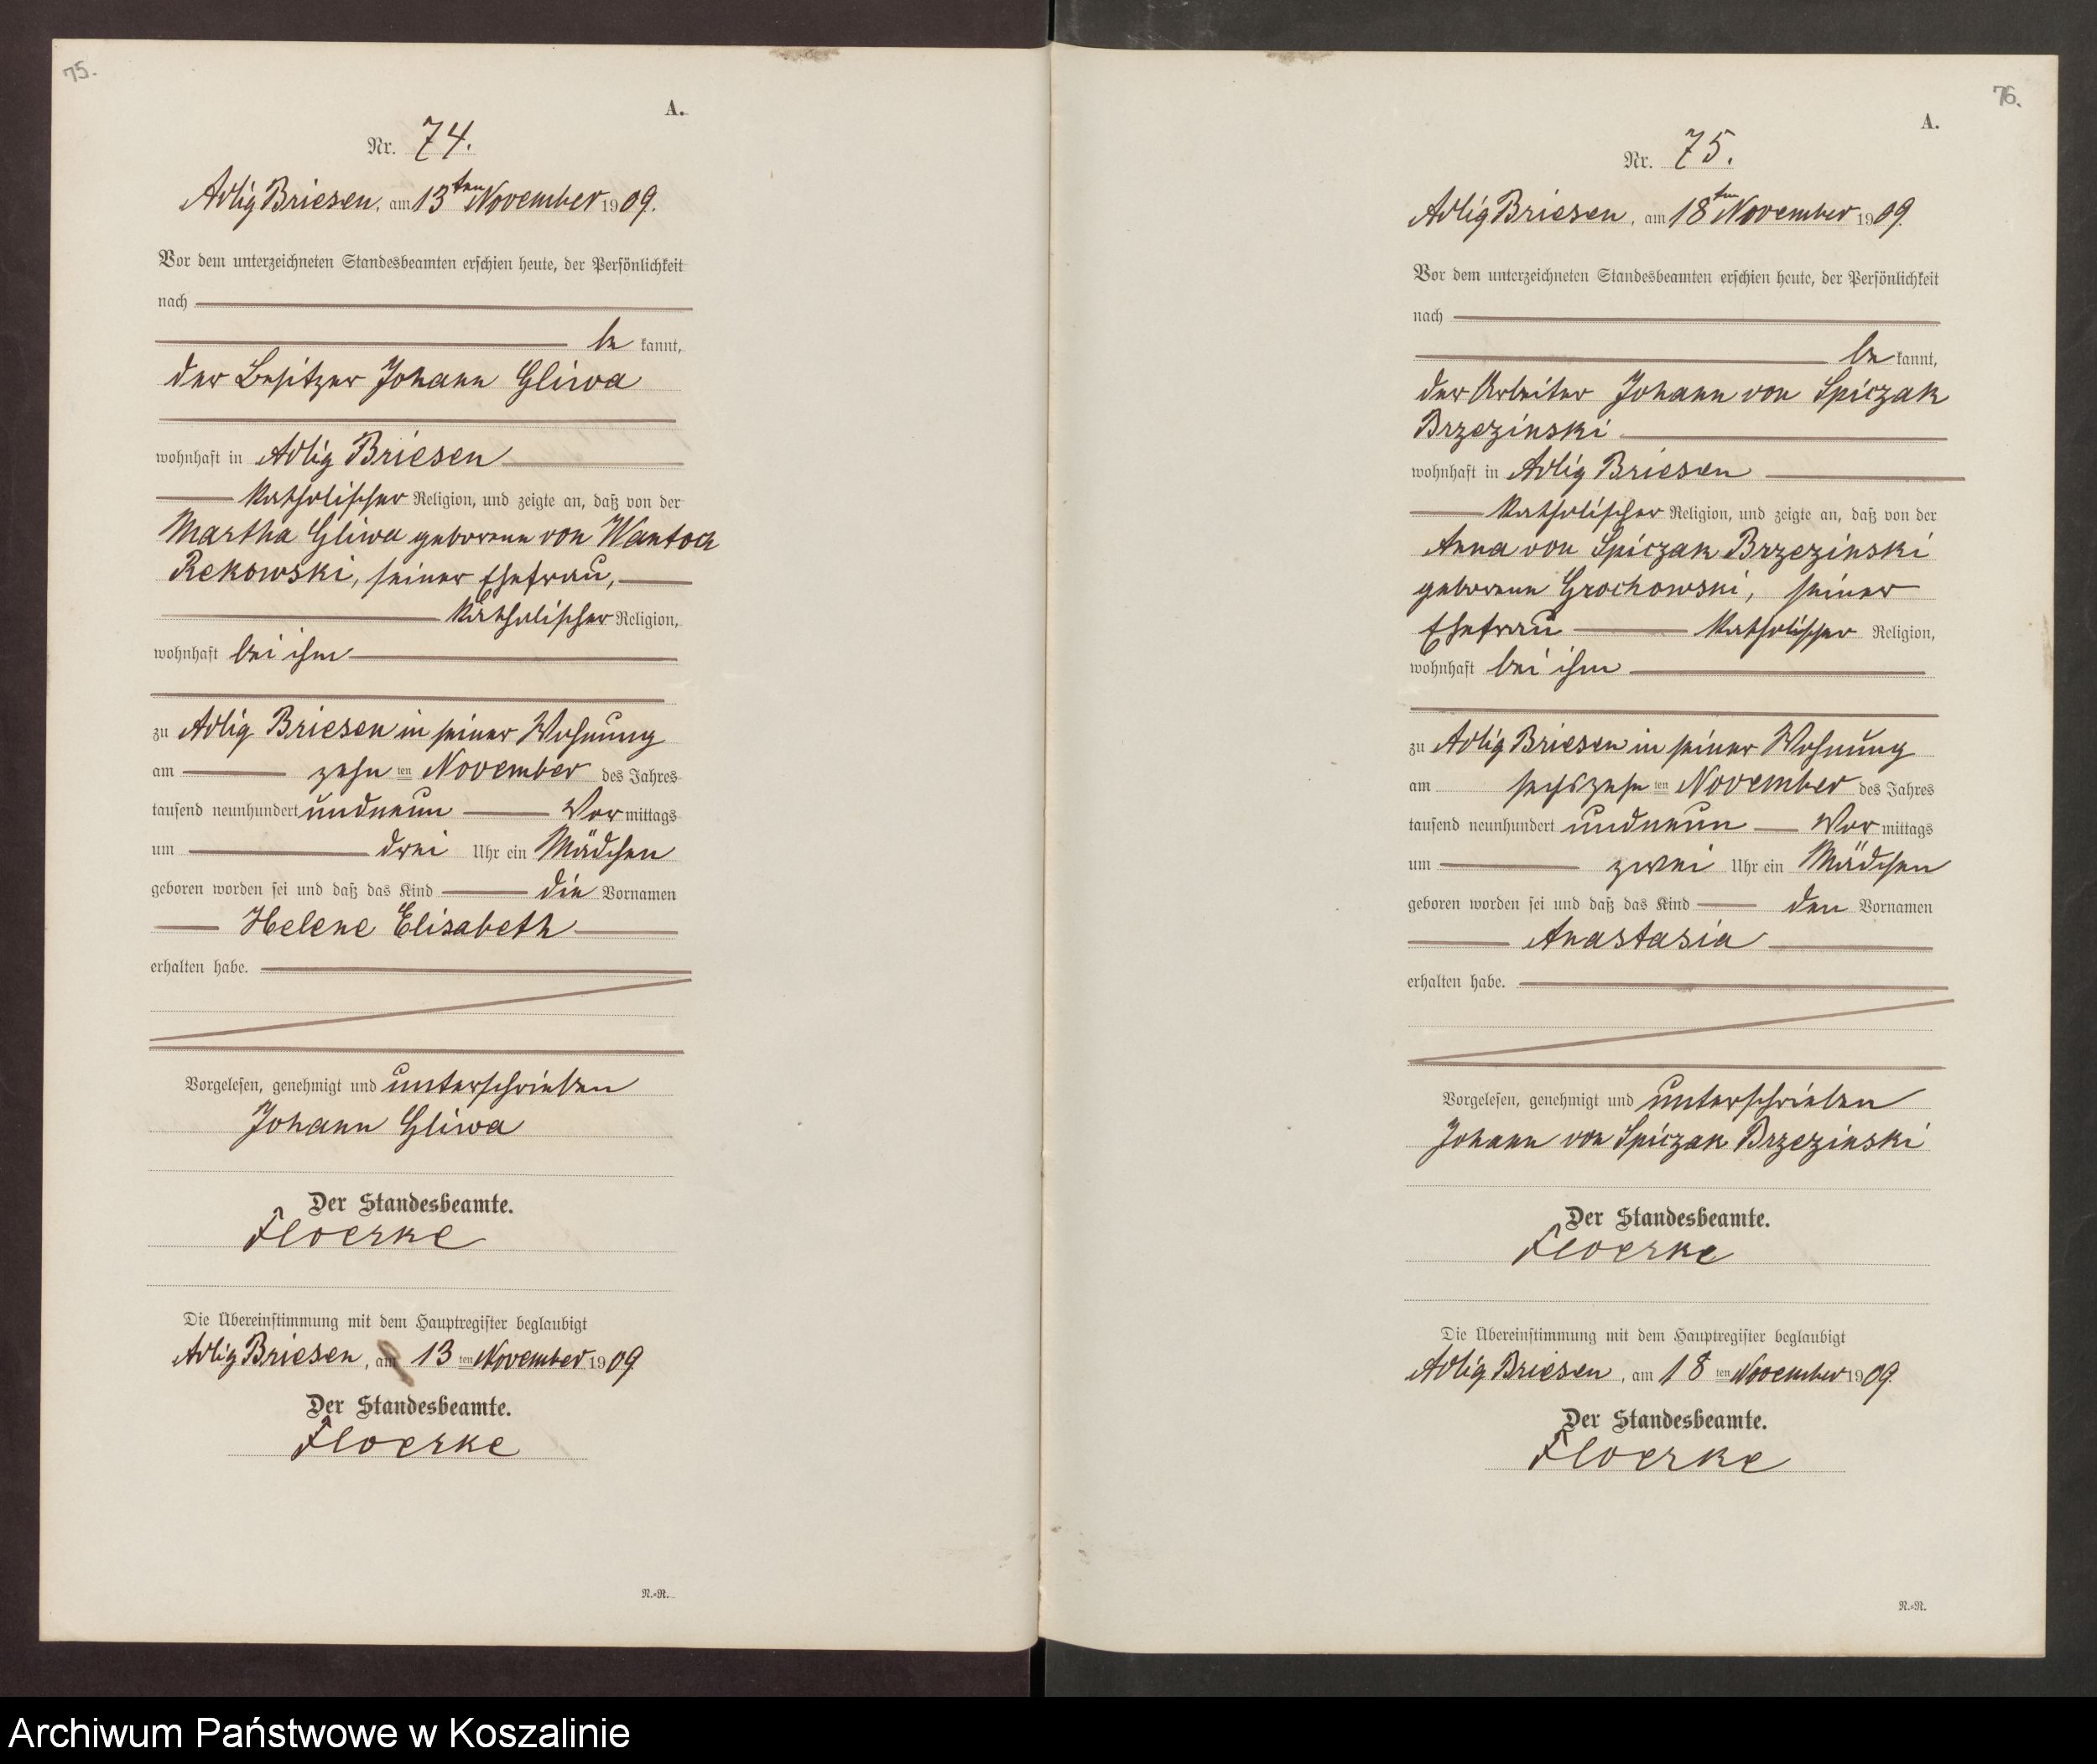 75.
A.
Nr. 74.
Adlig Briesen, am 13ten November 1909.
Vor dem unterzeichneten Standesbeamten erschien heute, der Persönlichkeit
nach
be kannt,
der Besitzer Johann Gliwa
wohnhaft in Adlig Briesen
katholischer Religion, und zeigte an, daß von der
Martha Gliwa geborenen von Wantoch
Rekowski, seiner Ehefrau,
katholischer Religion,
wohnhaft bei ihm
zu Adlig Briesen in seiner Wohnung
am zehn ten November des Jahres
tausend neunhundert undneun Vor mittags
um drei Uhr ein Mädchen
geboren worden sei und daß das Kind die Vornamen
Helene Elisabeth
erhalten habe.
Vorgelesen, genehmigt und unterschrieben
Johann Gliwa
Der Standesbeamte.
Floerke
Die Übereinstimmung mit dem Hauptregister beglaubigt
Adlig Briesen, am 13 ten November 1909
Der Standesbeamte.
Floerke
N.=R.
76.
A.
Nr. 75.
Adlig Briesen, am 18ten November 1909.
Vor dem unterzeichneten Standesbeamten erschien heute, der Persönlichkeit
nach
be kannt,
der Arbeiter Johann von Spiczak
Brzezinski
wohnhaft in Adlig Briesen
katholischer Religion, und zeigte an, daß von der
Anna von Spiczak Brzezinski
geborenen Grochowski, seiner
Ehefrau katholischer Religion,
wohnhaft bei ihm
zu Adlig Briesen in seiner Wohnung
am sechszehn ten November des Jahres
tausend neunhundert undneun Vor mittags
um zwei Uhr ein Mädchen
geboren worden sei und daß das Kind den Vornamen
Anastasia
erhalten habe.
Vorgelesen, genehmigt und unterschrieben
Johann von Spiczak Brzezinski
Der Standesbeamte.
Floerke
Die Übereinstimmung mit dem Hauptregister beglaubigt
Adlig Briesen, am 18 ten November 1909.
Der Standesbeamte.
Floerke
N.=R.
Archiwum Państwowe w Koszalinie